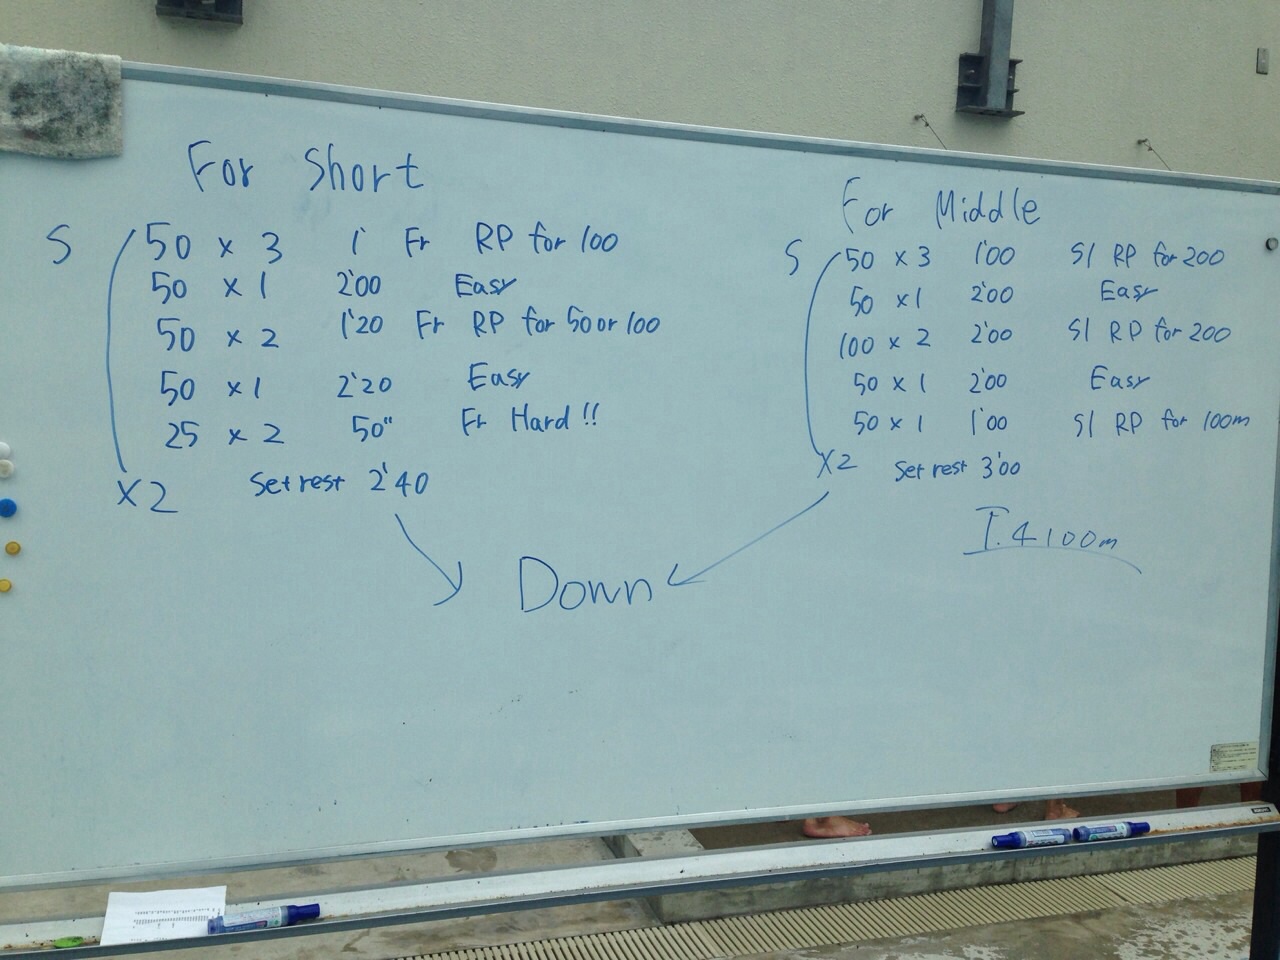 For Short
S 50 x 3 1' Fr RP for 100
50 x 1 2'00 Easy
50 x 2 1'20 Fr RP for 50 or 100
50 x 1 2'20 Easy
25 x 2 50" Fr Hard!!
x2 Set rest 2'40
For Middle
S 50 x 3 1'00 S1 RP for 200
50 x 1 2'00 Easy
100 x 2 2'00 S1 RP for 200
50 x 1 2'00 Easy
50 x 1 1'00 S1 RP for 100m
x2 Set rest 3'00
T.4100m
Down